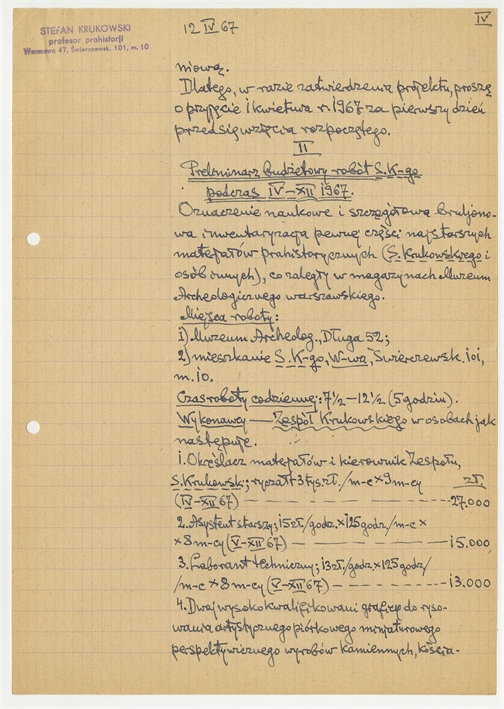 STEFAN KRUKOWSKI
profesor prahistorji
Warszawa 47, Świerczewsk. 101, m. 10
12 IV 67
IV
niową.
Dlatego, w razie zatwierdzenia projektu, proszę
o przyjęcie 1 kwietnia r. 1967 za pierwszy dzień
przedsięwzięcia rozpoczętego.
II
Preliminarz budżetowy robót S. K-go
podczas IV–XII 1967.
Oznaczenie naukowe i szczegółowa bruljono-
wa inwentaryzacja pewnej części najstarszych
materjałów prahistorycznych (S. Krukowskiego i
osób innych), co zaległy w magazynach Muzeum
Archeologicznego warszawskiego.
Miejsca roboty:
1) Muzeum Archeolog., Długa 52;
2) mieszkanie S. K-go, W-wa, Świerczewsk. 101,
m. 10.
Czas roboty codziennej: 7½–12½ (5 godzin).
Wykonawcy — Zespół Krukowskiego w osobach jak
następuje.
1. Określacz materjałów i kierownik Zespołu,
S. Krukowski; ryczałt 3 tys. zł./m-c × 9 m-cy zł.
(IV–XII 67) — 27.000
2. Asystent starszy; 15 zł/godz × 125 godz/m-c ×
× 8 m-cy (V–XII 67) — 15.000
3. Laborant techniczny; 13 zł/godz × 125 godz/
/m-c × 8 m-cy (V–XII 67) — 13.000
4. Dwaj wysoko kwalifikowani graficy do ryso-
wania artystycznego piórkowego miniaturowego
perspektywicznego wyrobów kamiennych, kościa-